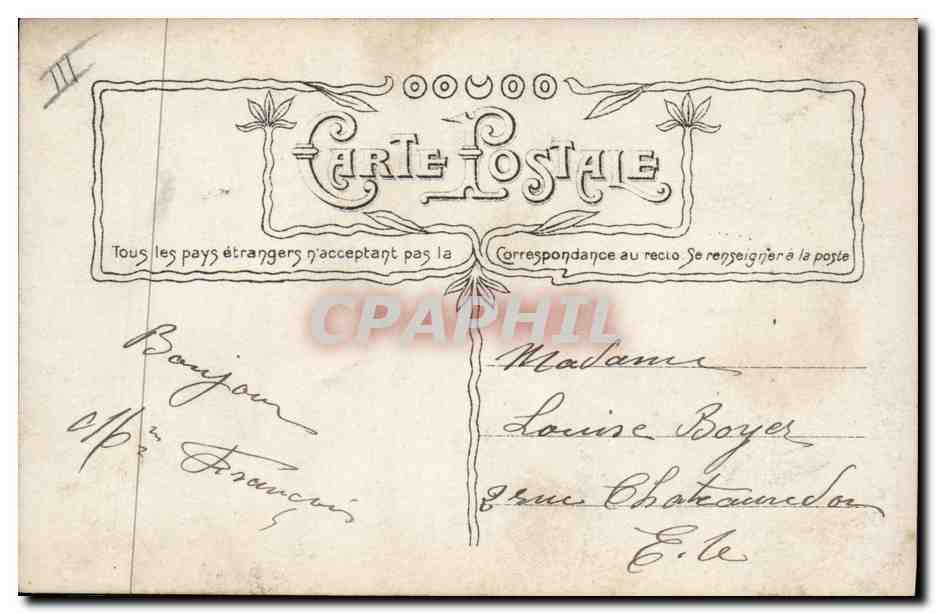 III
CARTE POSTALE
Tous les pays étrangers n'acceptant pas la Correspondance au recto. Se renseigner à la poste
CPAPHIL
Bonjour
François
Madame
Louise Boyer
rue Chateaudon
E.V.